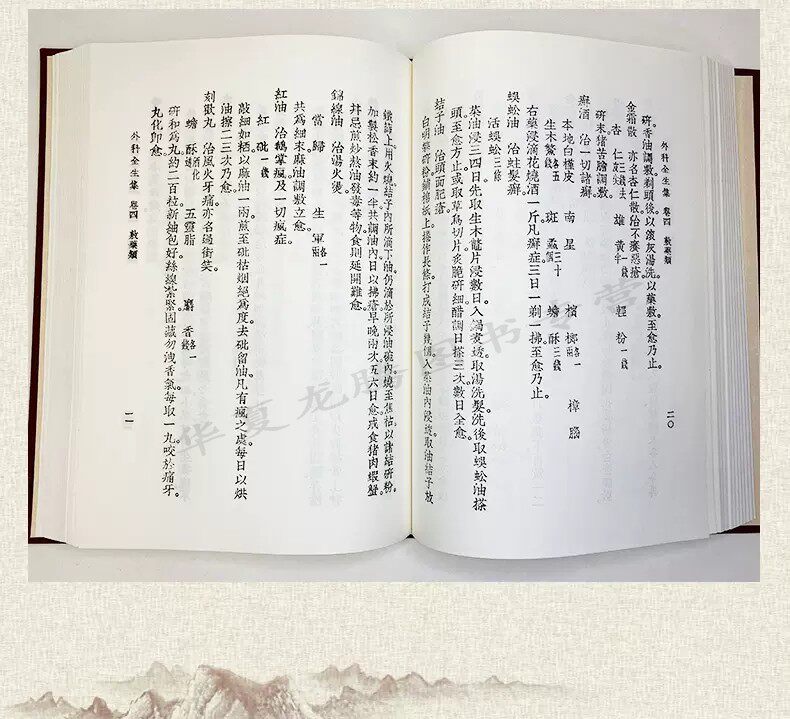 外科全生集 卷四 敷藥類 二〇
研。香油調敷。剃頭後以滾灰湯洗。以藥敷至愈乃止。
金霜散 亦名杏仁散。治不癢惡瘡。
杏仁三錢去 雄黃一錢 輕粉一錢
研末。猪苦膽調敷。
癬酒 治一切諸癬。
本地槿皮 南星 檳榔各一兩 樟腦
生木鱉各五 斑蝥三十個 蟾酥三錢
右藥浸滴花燒酒一斤。凡癬症三日一剃一拂。至愈乃止。
蜈蚣油 治蛀髮癬。
活蜈蚣三條
菜油浸三四日。先取生木鱉片浸數日。入湯煑透。取湯洗髮。洗後取蜈蚣油搽
頭。至愈方止。或取草烏切片炙脆研細。醋調日搽三次。數日全愈。
結子油 治頭面肥瘡。
白明礬研粉。鋪棉紙上捲作長條。打成結子幾個。入菜油內浸透。取油結子放
鐵鉤上。用火燒結子。內所滴下油。仍滴於所浸油碗內。燒至焦枯。以諸結研粉。
加製松香末約一半。共調油內。日以拂瘡早晚兩次。五六日愈。戒食猪肉蝦蟹。
幷忌煎炒熬油發毒等物。食則延開難愈。
錦線油 治湯火燙。
當歸 生軍各一兩
共爲細末。麻油調敷立愈。
紅油 治鵝掌瘋及一切瘋症。
紅砒一錢
敲細如栖。以麻油一兩煎至砒枯烟絕爲度。去砒留油。凡有瘋之處。每日以烘
油擦二三次乃愈。
刻歡丸 治風火牙痛。亦名過街笑。
蟾酥酒化 五靈脂 麝香各一錢
研和爲丸。約二百粒。新綢包好。絲線紮緊。固藏勿洩香氣。每取一丸。咬於痛牙。
丸化卽愈。
外科全生集 卷四 敷藥類 二一
华夏龙腾图书专营